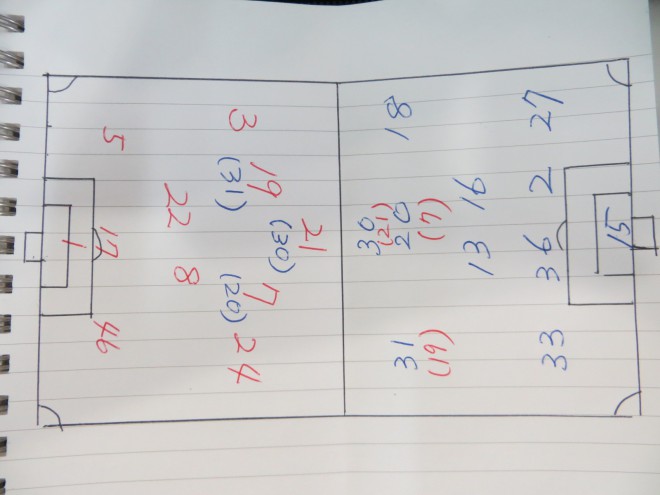 21
(30)
3 19 7 24
(31) (20)
22 8
5 17 46
1
30
(21)
31 20 18
(19) (7)
13 16
33 36 2 27
15